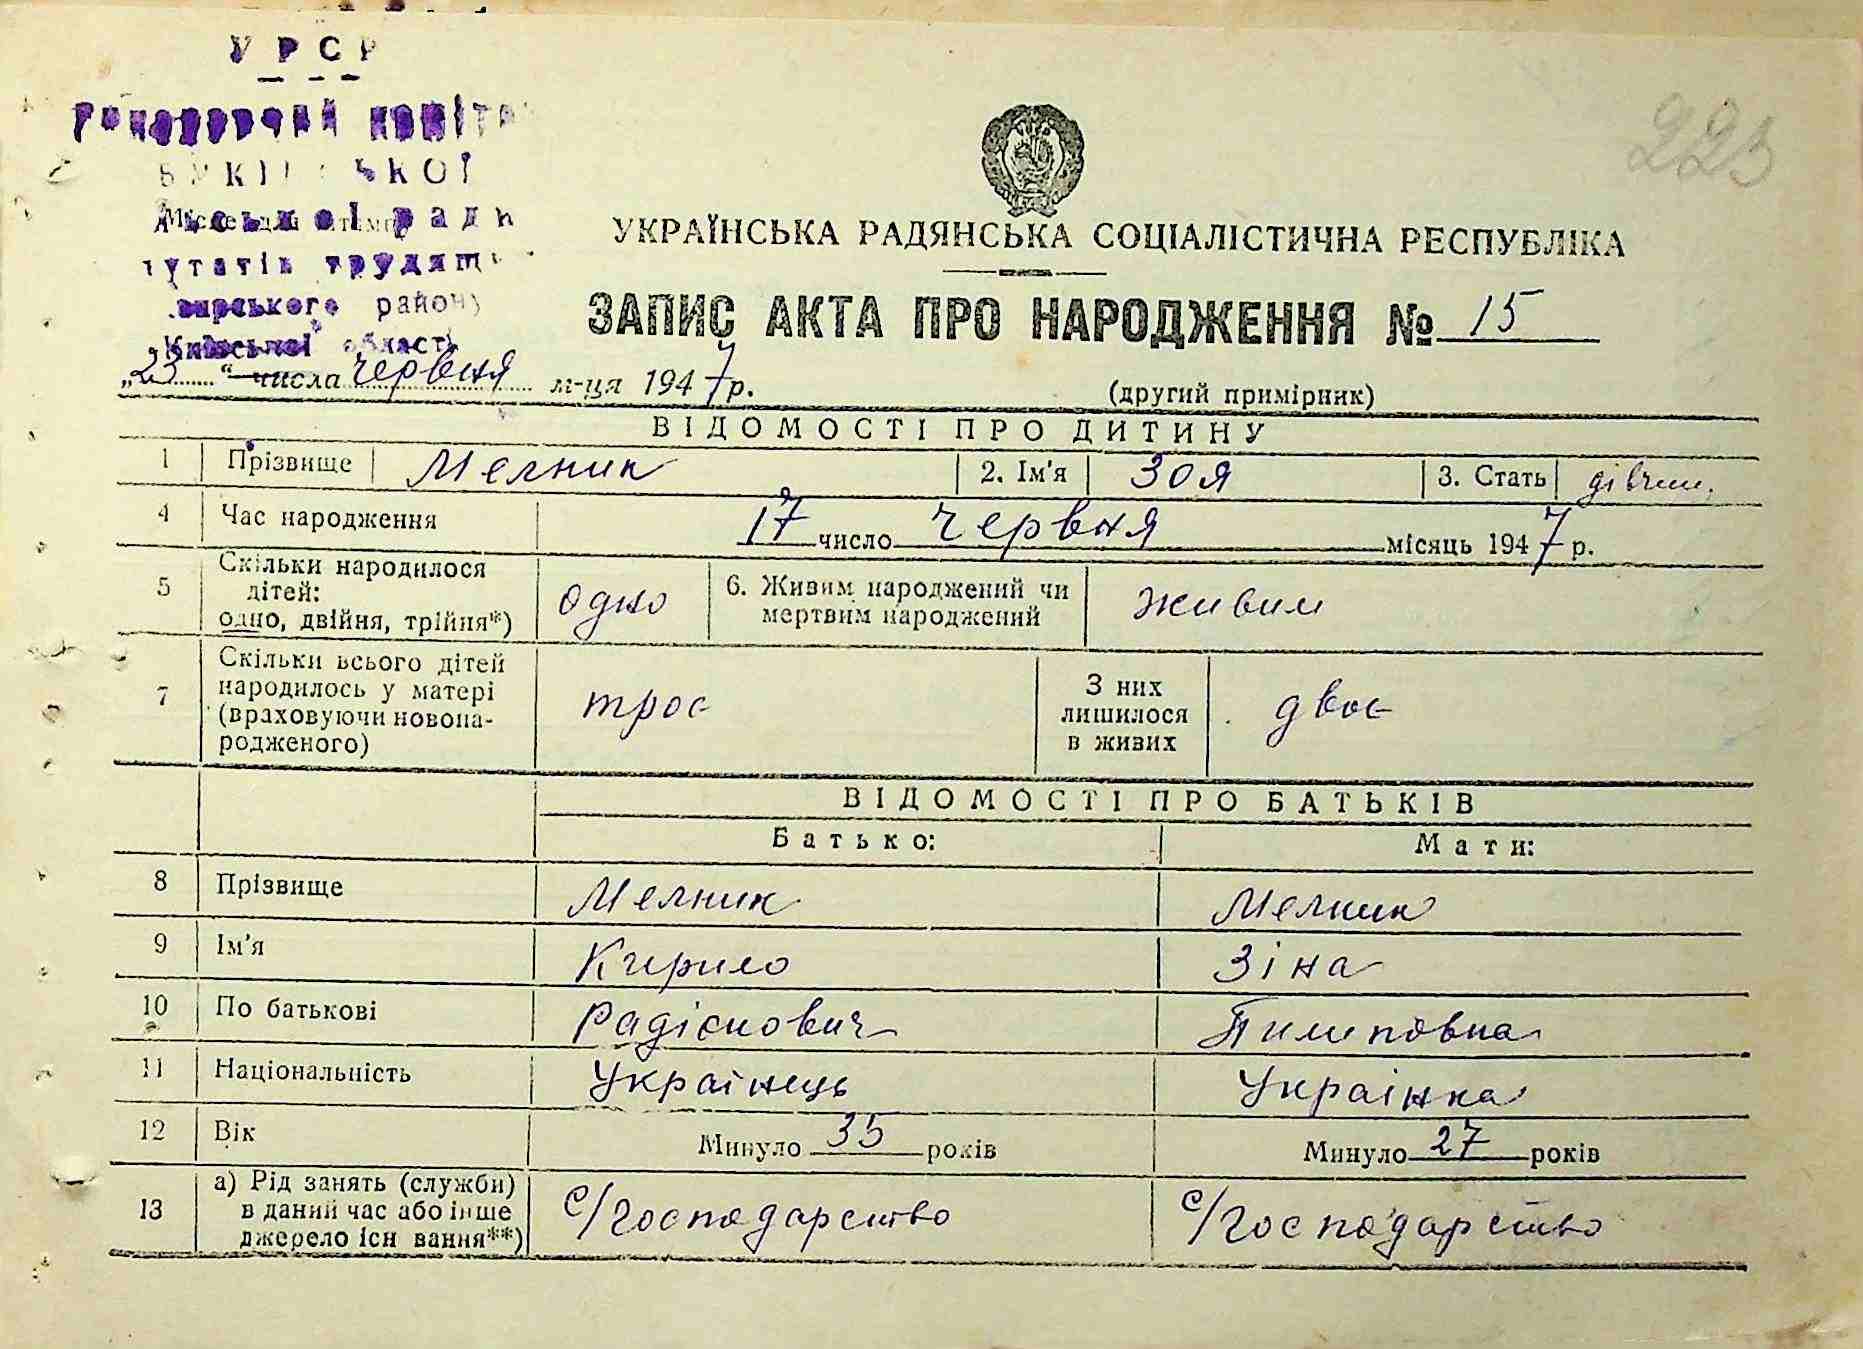 УРСР
223
УКРАЇНСЬКА РАДЯНСЬКА СОЦІАЛІСТИЧНА РЕСПУБЛІКА
трудящ
району
Київської області
ЗАПИС АКТА ПРО НАРОДЖЕННЯ № 15
„23“ числа червня м-ця 1947 р.
(другий примірник)
ВІДОМОСТІ ПРО ДИТИНУ
1 Прізвище Мелник 2. Ім'я Зоя 3. Стать дівчин.
4 Час народження 17 число червня місяць 1947 р.
5 Скільки народилося дітей: одно, двійня, трійня*) одно 6. Живим народжений чи мертвим народжений живим
7 Скільки всього дітей народилось у матері (враховуючи новона-родженого) троє З них лишилося в живих двоє
ВІДОМОСТІ ПРО БАТЬКІВ
Батько: Мати:
8 Прізвище Мелник Мелник
9 Ім'я Кирило Зіна
10 По батькові Радіонович Пилиповна
11 Національність Українець Українка
12 Вік Минуло 35 років Минуло 27 років
13 а) Рід занять (служби) в даний час або інше джерело існ вання**) с/господарство с/господарство